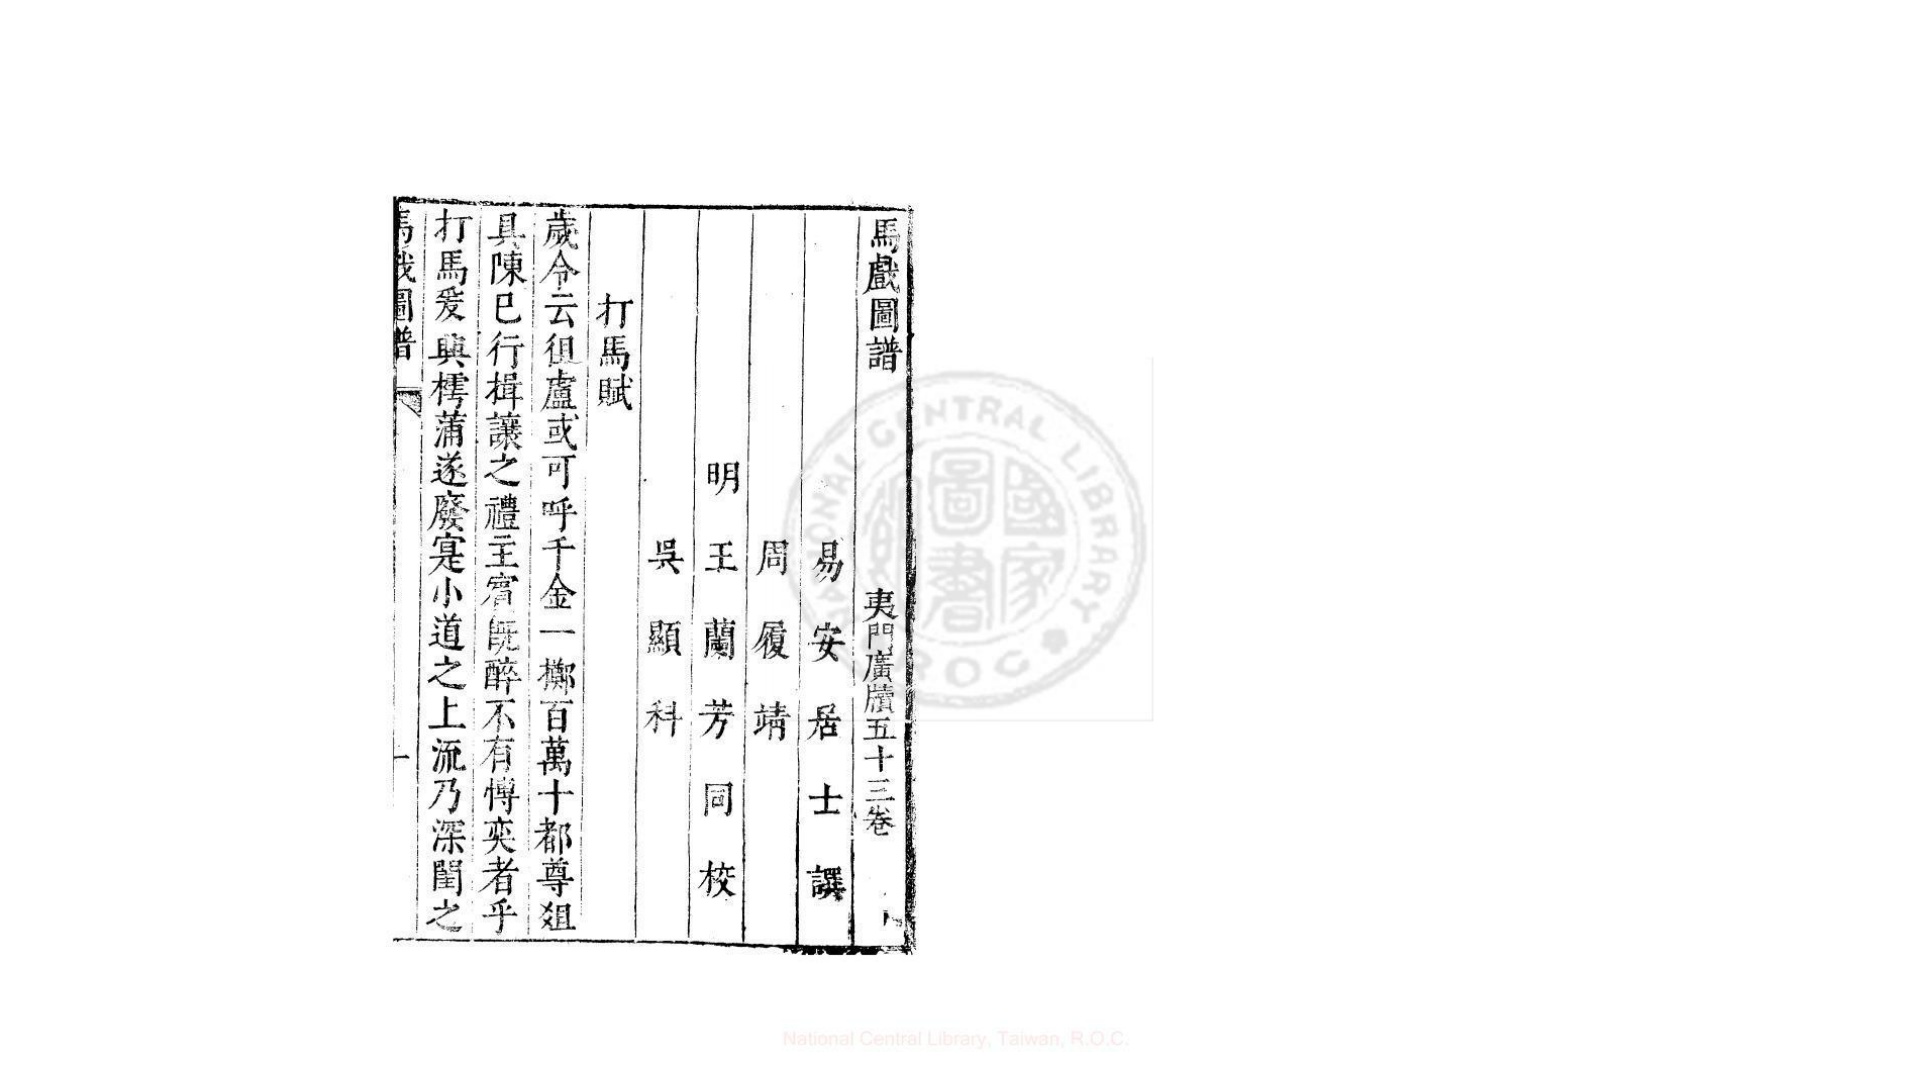 馬戲圖譜 夷門廣牘五十三卷
易安居士譔
周履靖
明王蘭芳同校
吳顯科
打馬賦
歲令云徂盧或可呼千金一擲百萬十都尊俎
具陳巳行揖讓之禮主賓旣醉不有愽奕者乎
打馬爰興樗蒲遂廢寔小道之上流乃深閨之
馬戲圖譜 一
NATIONAL CENTRAL LIBRARY R.O.C
國家圖書館
National Central Library, Taiwan, R.O.C.